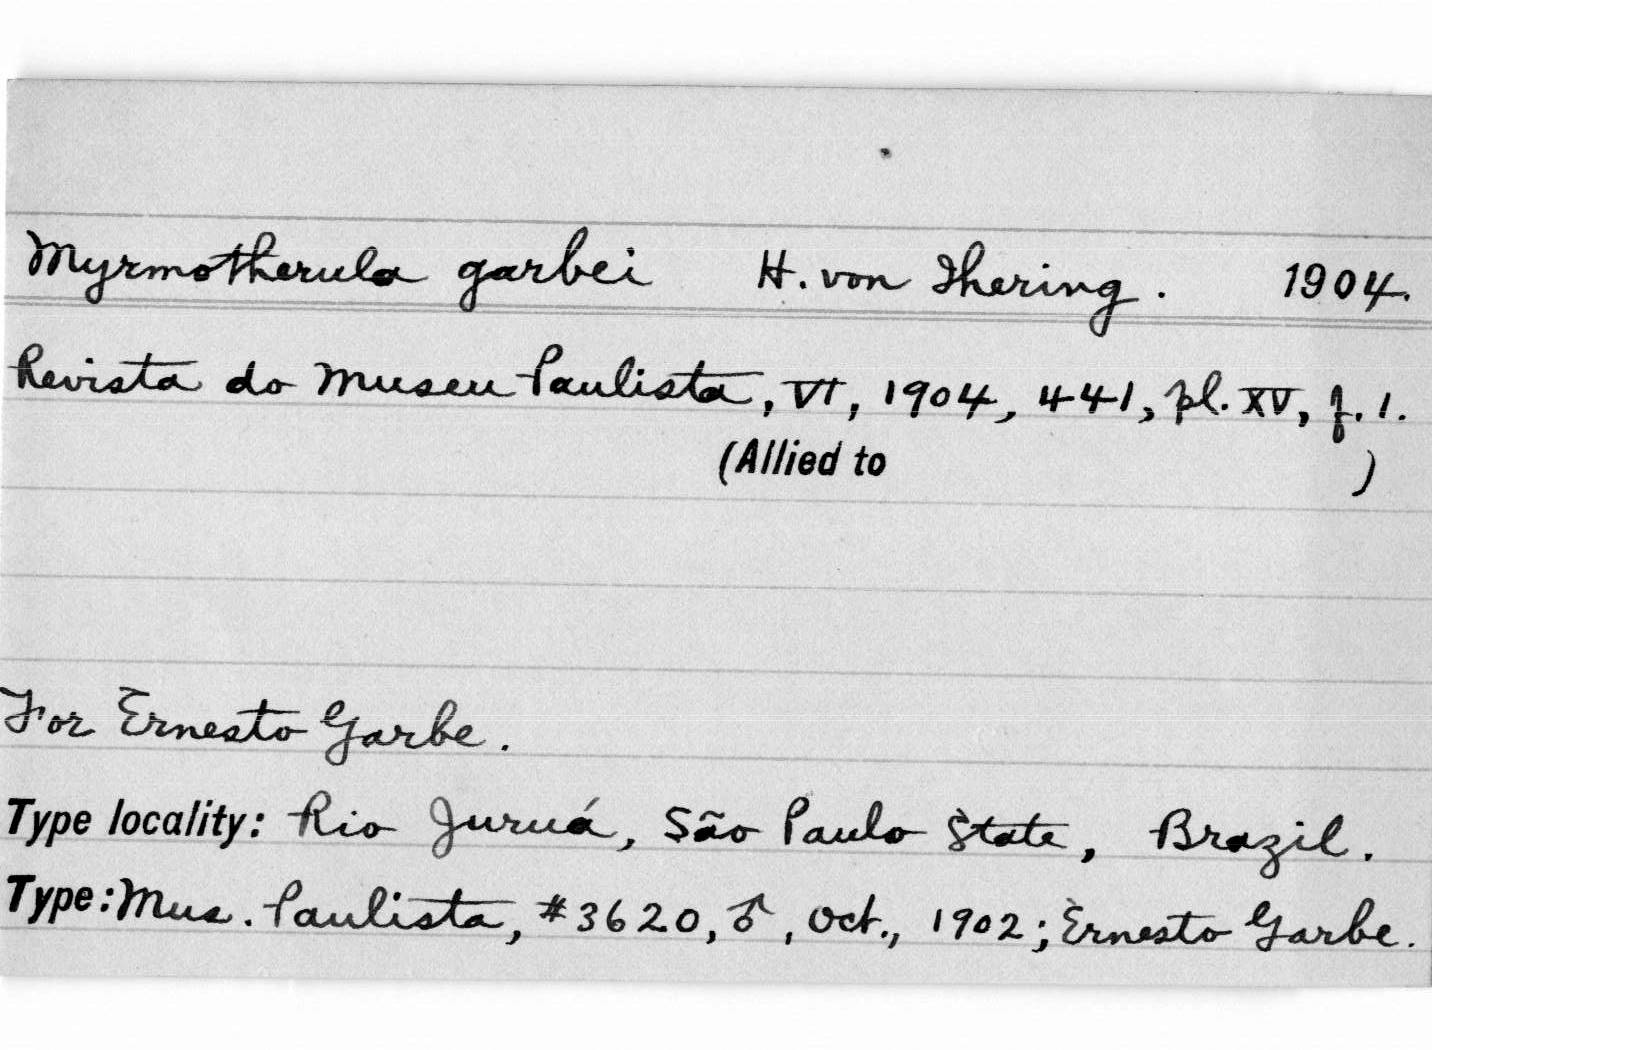 Myrmotherula garbei H. von Ihering. 1904.
Revista do Museu Paulista, VI, 1904, 441, pl. XV, f. 1.
(Allied to )
For Ernesto Garbe.
Type locality: Rio Juruá, São Paulo State, Brazil.
Type: Mus. Paulista, #3620, ♂, Oct., 1902; Ernesto Garbe.